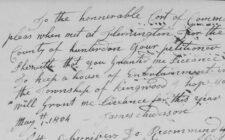 To the honnorable Cort of Common
pleas when met at Flemington for the
County of hunterdon your petitioner
that you granted me Liecence
To keep a house of Entertainment in
the Township of Kingwood hope you
will grant me Liecence for this year
May 1806 James
to Recommend